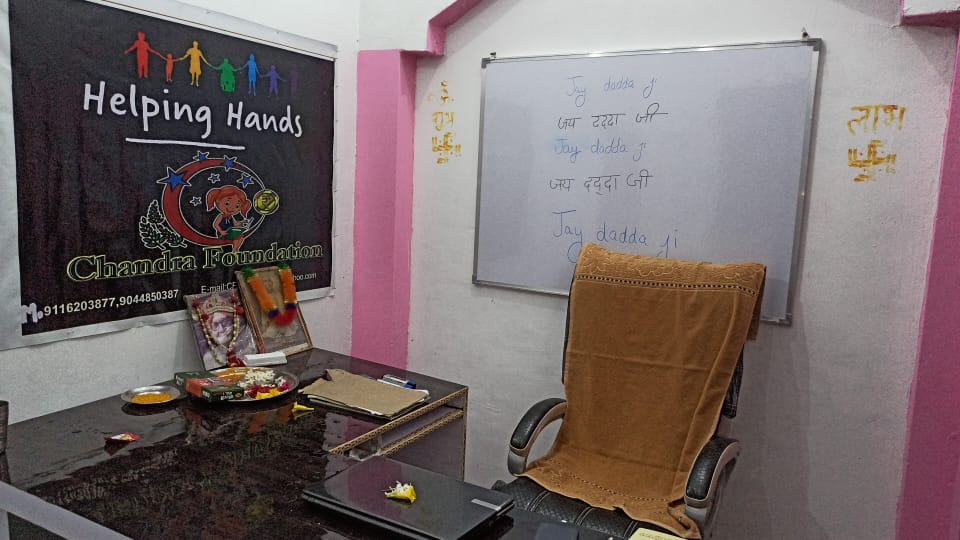 Helping Hands
Chandra Foundation
E-mail:
M.9116203877,9044850387
शुभ
Jay dadda ji
जय दद्दा जी
Jay dadda ji
जय दद्दा जी
Jay dadda ji
लाभ